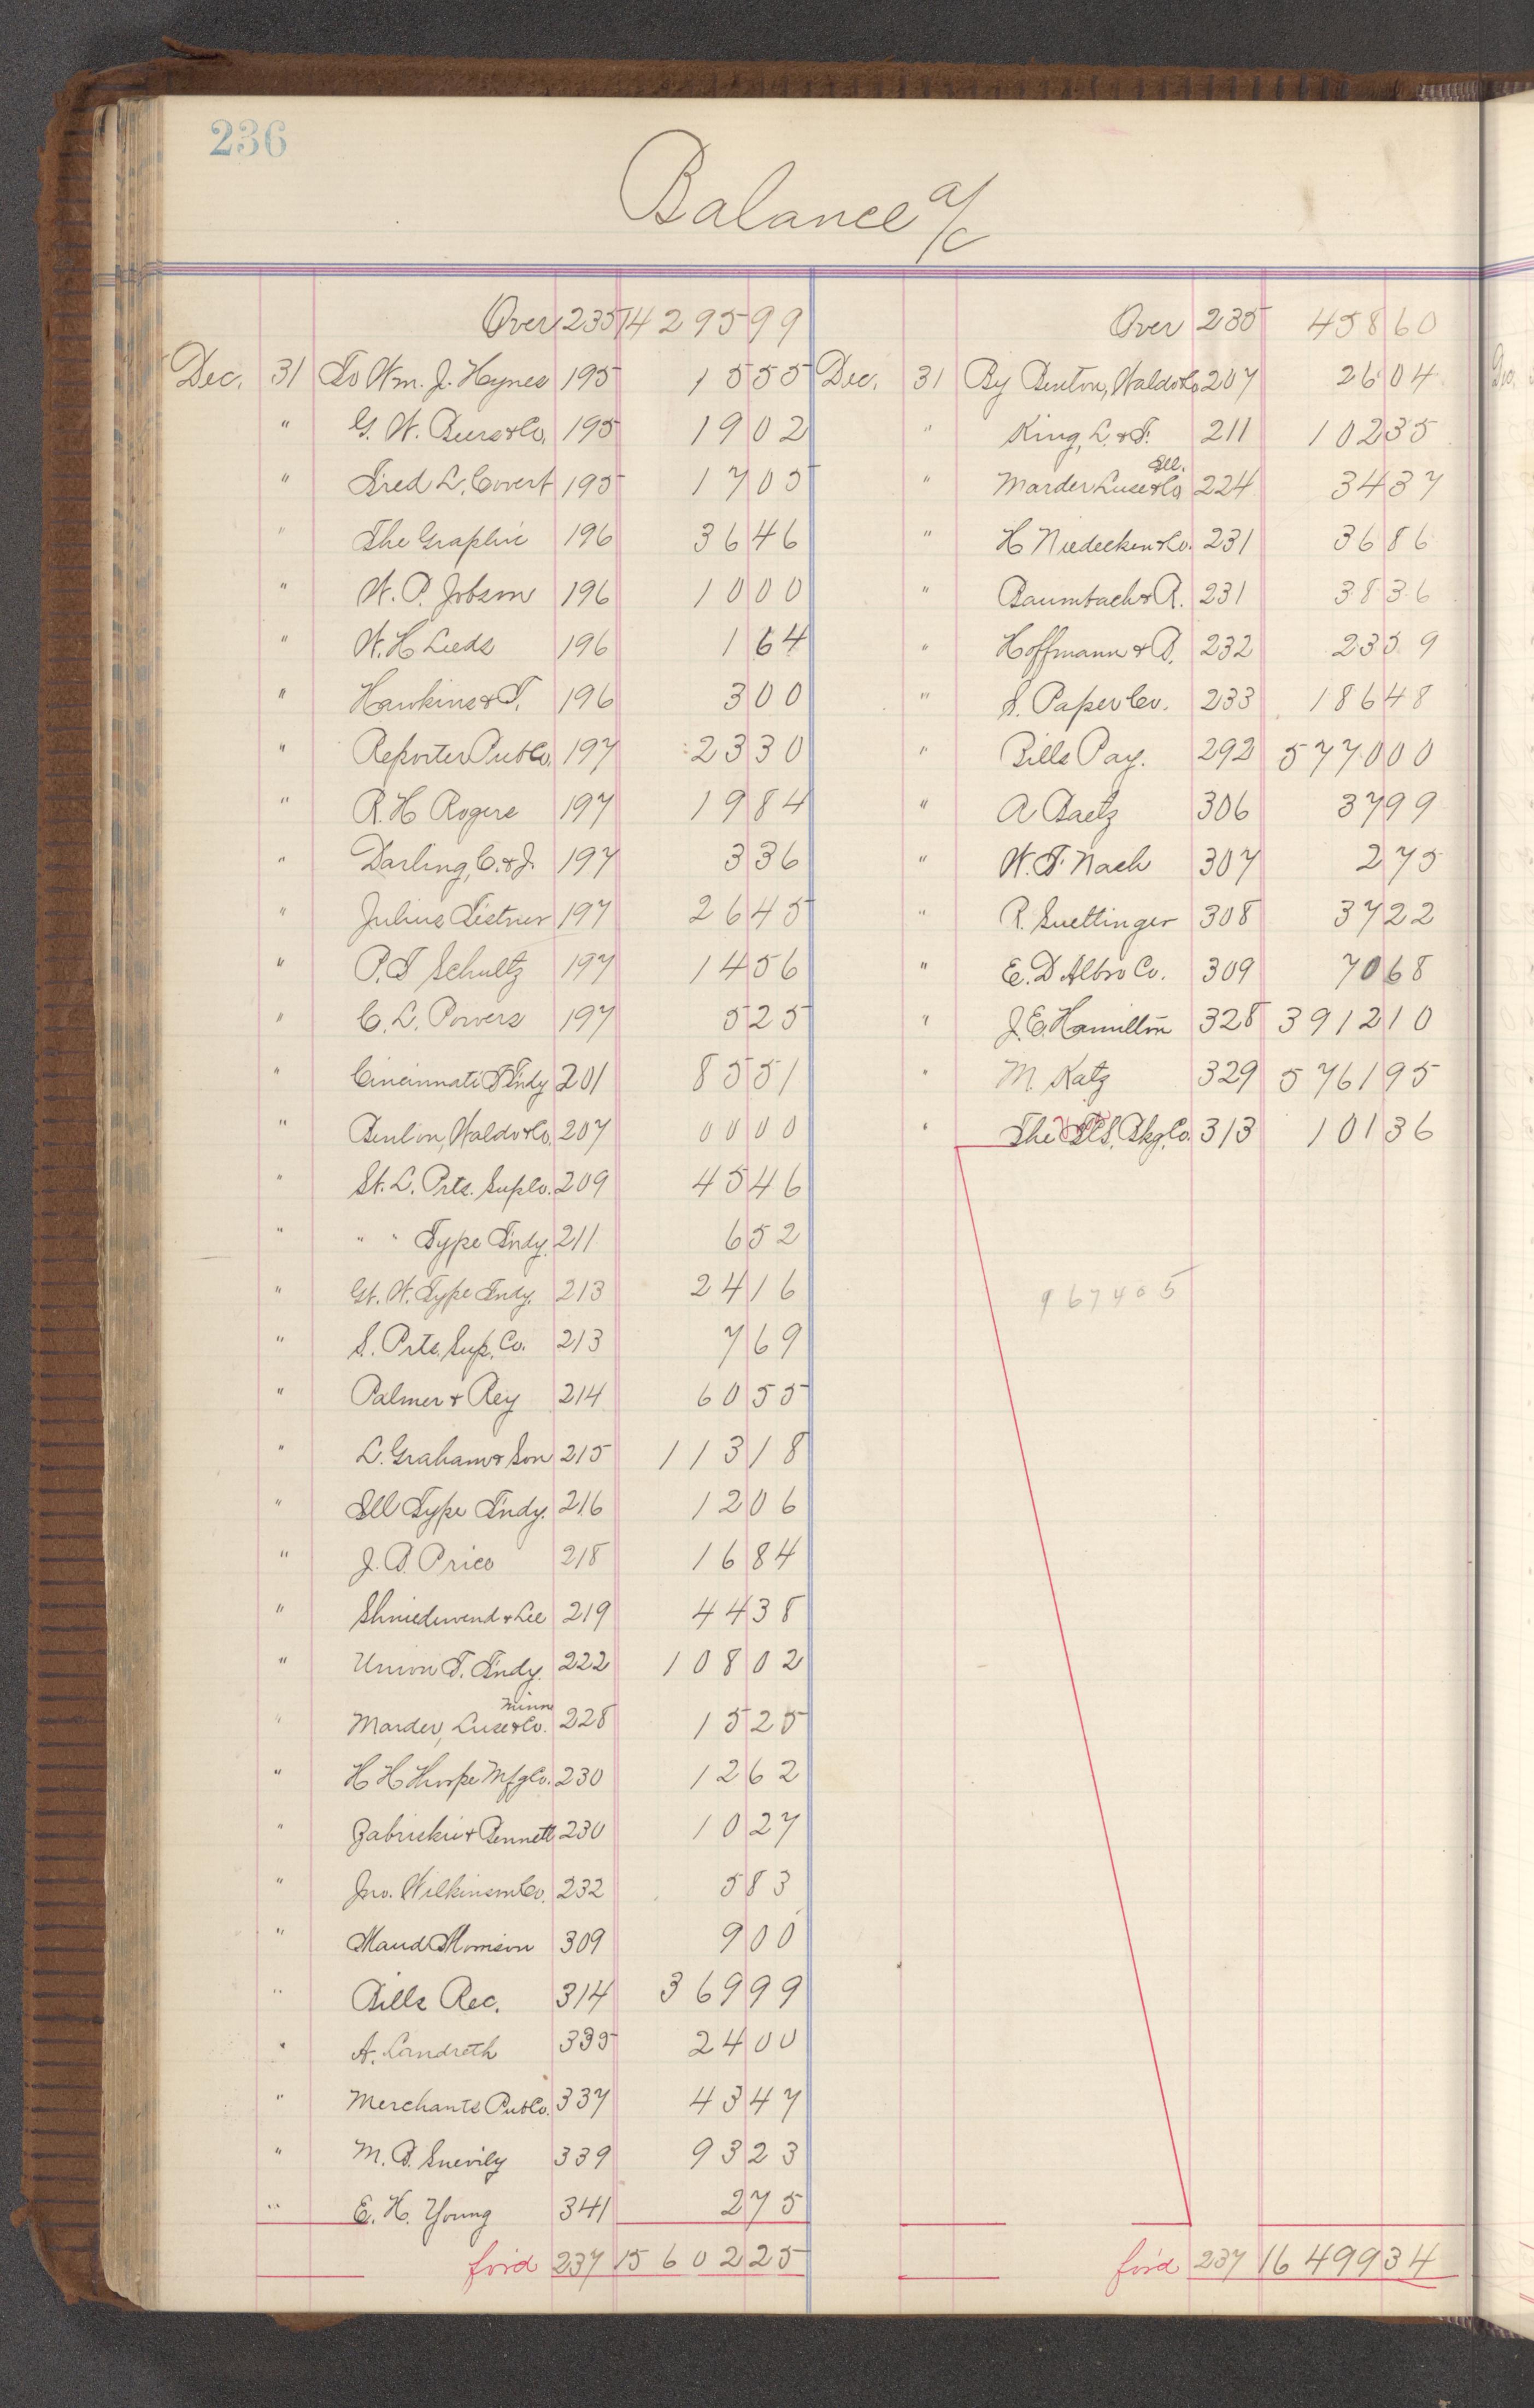 236
Balance a/c
Over 235 14295 99
Dec. 31 To Wm. J. Hynes 195 15 55
" G. W. Buers & Co. 195 19 02
" Fred L. Covert 195 17 05
" The Graphic 196 36 46
" W. P. Jobson 196 10 00
" W. H Leeds 196 1 64
" Hawkins & T. 196 3 00
" Reporter Pub Co. 197 23 30
" R. H Rogers 197 19 84
" Darling, C. & J. 197 3 36
" Julius Fistner 197 26 45
" P. T Schultz 197 14 56
" C. L. Powers 197 5 25
" Cincinnati T Fndy 201 85 51
" Benton, Waldo & Co. 207 00 00
" St. L. Prts. Sup Co. 209 45 46
" " " Type Fndy. 211 6 52
" Gt. W. Type Fndy. 213 24 16
" S. Prts. Sup. Co. 213 7 69
" Palmer & Rey 214 60 55
" L. Graham & Son 215 113 18
" Ill Type Fndy. 216 12 06
" J. B. Price 218 16 84
" Shniedewend & Lee 219 44 38
" Union T. Fndy. 222 108 02
" Marder, Luse & Co. Minn 228 15 25
" H H Thorpe Mfg Co. 230 12 62
" Zabriskie & Bennett 230 10 27
" Jno. Wilkinson Co. 232 5 83
" Maud Momson 309 9 00
" Bills Rec. 314 369 99
" A. Landreth 335 24 00
" Merchants Pub Co. 337 43 47
" M. B. Snevily 339 93 23
" E. H. Young 341 2 75
for'd 237 15602 25
Over 235 458 60
Dec. 31 By Benton, Waldo & Co 207 26 04
" King, L. & F. 211 102 35
" Marder Luse & Co Ill. 224 34 37
" H Niedecken & Co. 231 36 86
" Baumbach & R. 231 38 36
" Hoffmann & B. 232 23 59
" S. Paper Co. 233 186 48
" Bills Pay. 292 5770 00
" A Baetz 306 37 99
" W. F. Nach 307 2 75
" R. Suettinger 308 37 22
" E. D Albro Co. 309 70 68
" J. E. Hamilton 328 3912 10
" M. Katz 329 5761 95
" The Pkg. Co. 313 101 36
967405
for'd 237 16499 34